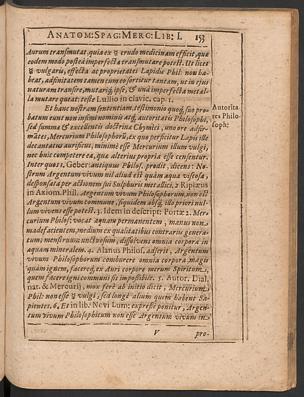 ANATOM: SPAG: MERC: LIB: I. 153
Aurum transmutat, quia ex ꝫ crudo medicinam efficit, quæ
eodem modo postea imperfecta transmutare potest. Ut licet
ꝫ vulgaris, effectu ac proprietates Lapidis Phil: non ha-
beat, adfinitatem tamen cum eo sortitur tantam, ut in ejus
naturam transire, mutariq́; ipse, & unà imperfecta metal-
la mutare queat: teste Lullio in clavic. cap. 1.
Et hanc nostram sententiam, testimoniis quoq́; suis pro-
batum eunt non infimi nominis atq́; autoritatis Philosophi,
sed summa & excellenti doctrina Chymici,
mates, Mercurium Philosophorũ, ex quo perficitur Lapis ille
decantatus aurificus, minimè esse Mercurium illum vulgi,
nec huic competere ea, quæ alterius propria esse censentur.
Inter quos 1. Geber: antiquus Philos. prodit, dicens: No-
strum Argentum vivum nil aliud est quàm aqua viscosa,
dispensata per actionem sui Sulphuris metallici. 2. Ripleus
in Axiom. Phil. Argentum vivum Philosophorum, non est
Argentum vivum commune, siquidem absq́; illo priori nul-
lum vivum esse potest. 3. Idem in descript: Portæ 2. Mer-
curium Philos: vocat aquam permanentem, manus non
madefacientem, medium ex qualitatibus contrariis genera-
tum: menstruum: unctuosum, dissolvens omnia corpora in
aquam mineralem. 4. Natus Philos. asserit, Argentum
vivum Philosophorum comburere omnia corpora magis
quàm ignem, facereq́; ex Auri corpore merum Spiritum,
quem facere igneo communi sit impossibile. 5. Autor Dial.
nat. & Mercurij, non ferè ab initio dicit, Mercurium
Phil: non esse ꝫ vulgi, sed longè alium quem habent Sa-
pientes. 6. Et in lib. Novi Lum: expressè ponitur, Argen-
tum vivum Philosophicum non esse Argentum vivum in-
V pro-
Autorita-
tes Philo-
soph: